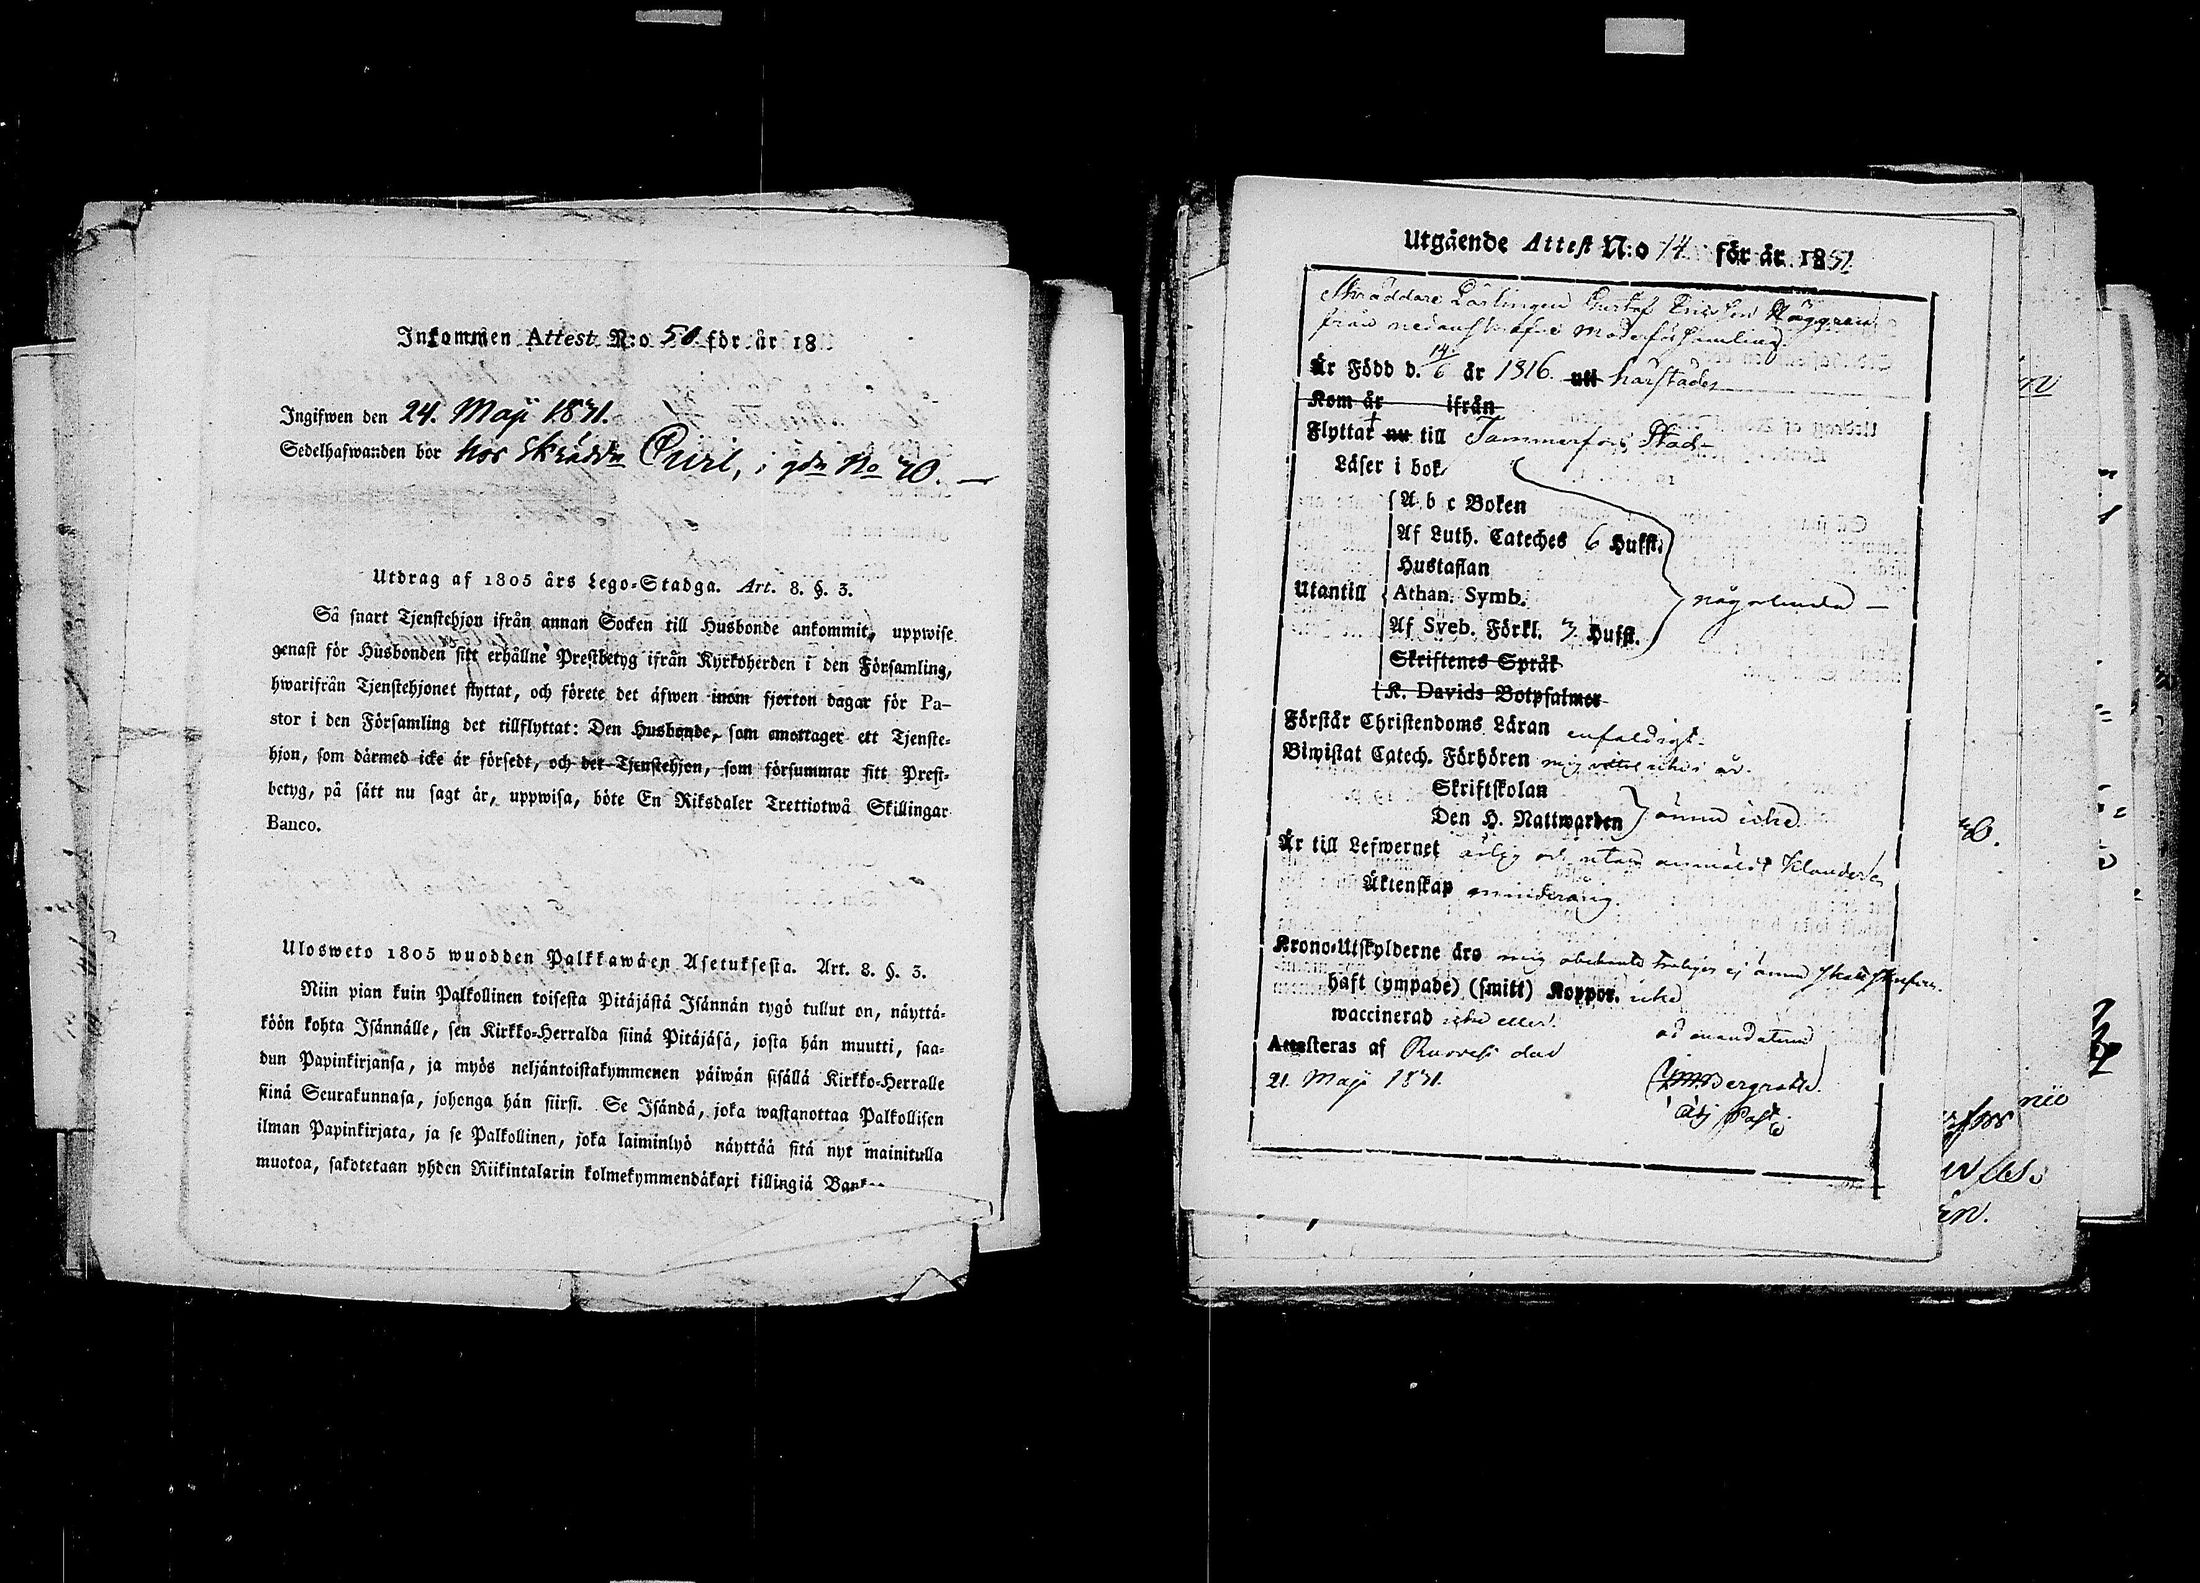 Inkommen Attest N:o 50 för år 18
Ingifwen den 24. Maji 1831.
Sedelhafwanden bor hos Skrädd:n Qvist, i gdn No 70. —
Utdrag af 1805 års Lego-Stadga. Art. 8. §. 3.
Så snart Tjenstehjon ifrån annan Socken till Husbonde ankommit, uppwise
genast för Husbonden sitt erhållne Prestbetyg ifrån Kyrkoherden i den Församling,
hwarifrån Tjenstehjonet flyttat, och förete det äfwen inom fjorton dagar för Pa-
stor i den Församling det tillflyttat: Den Husbonde, som emottager ett Tjenste-
hjon, som därmed icke är försedt, och det Tjenstehjon, som försummar sitt Prest-
betyg, på sätt nu sagt är, uppwisa, böte En Riksdaler Trettiotwå Skillingar
Banco.
Ulosweto 1805 wuodden Palkkawäen Asetuksesta. Art. 8. §. 3.
Niin pian kuin Palkollinen toisesta Pitäjästä Isännän tygö tullut on, näyttä-
köön kohta Isännälle, sen Kirkko-Herralda siinä Pitäjäsä, josta hän muutti, saa-
dun Papinkirjansa, ja myös neljäntoistakymmenen päiwän sisällä Kirkko-Herralle
siinä Seurakunnasa, johonga hän siirsi. Se Isändä, joka wastanottaa Palkollisen
ilman Papinkirjata, ja se Palkollinen, joka laiminlyö näyttää sitä nyt mainitulla
muotoa, sakotetaan yhden Riikintalarin kolmekymmendäkaxi killingiä Bank
Utgående Attest N:o 14 för år 1831.
Skräddare Lärlingen Gustaf Ericsson Häggren
från nedanskrefne Moderförsamling
Är Född d. 14/6 år 1816. uti härstädes
Kom år ifrån
Flyttar nu till Tammerfors Stad
Läser i bok
A b c Boken
Af Luth. Cateches 6 Hufst.
Hustaflan
Utantill Athan. Symb. någorlunda —
Af Sveb. Förkl. 3 Hufst.
Skriftenes Språk
K. Davids Botpsalmer
Förstår Christendoms Läran enfaldigt.
Biwistat Catech. Förhören
Skriftskolan
Den H. Nattwarden ännu icke
Är till Lefwernet ärlig och utan anmäldt klander
Äktenskap minderårig.
Krono-Utskylderne äro mig obekante troligen ej ännu skattskrifven.
haft (ympade) (smitt) Koppor. icke
waccinerad icke eller.
Attesteras af Ruovesi den ad mandatum
21. Maji 1831. Bergroth.
Adj Past